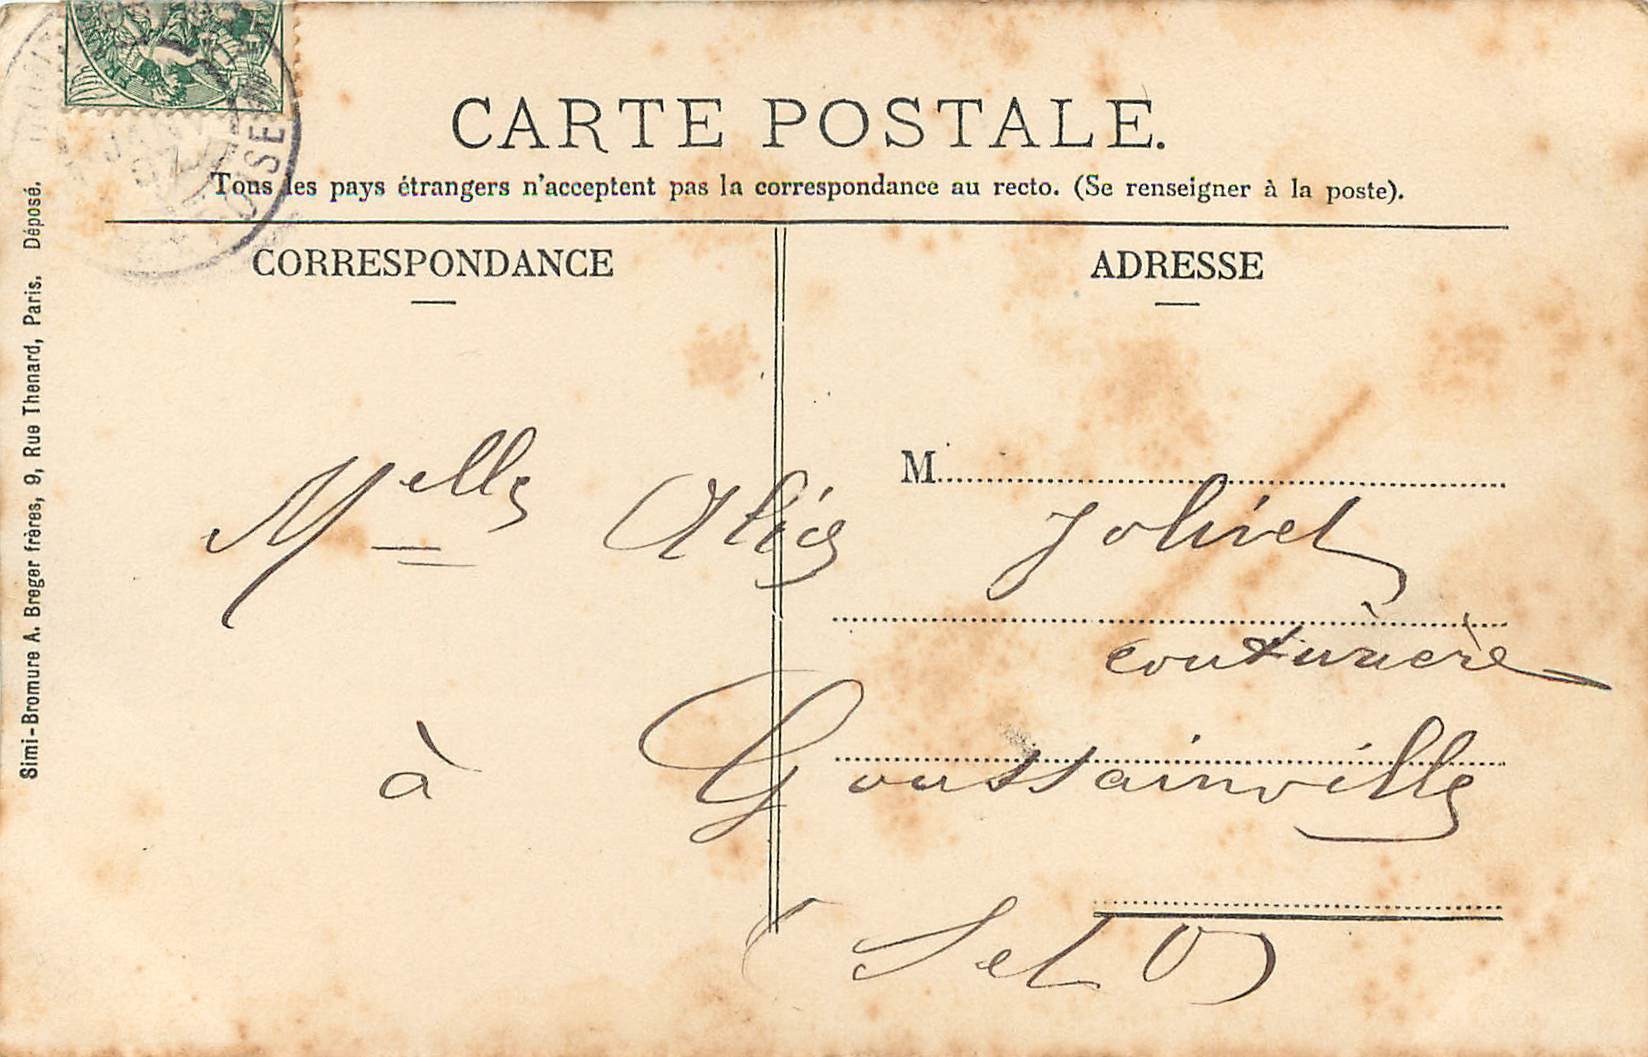 CARTE POSTALE.
Tous les pays étrangers n'acceptent pas la correspondance au recto. (Se renseigner à la poste).
CORRESPONDANCE
ADRESSE
M
Melle Alice Jolivet
couturière
à Goussainville
(S et O)
Simi-Bromure A. Breger frères, 9, Rue Thenard, Paris. Déposé.
OISE